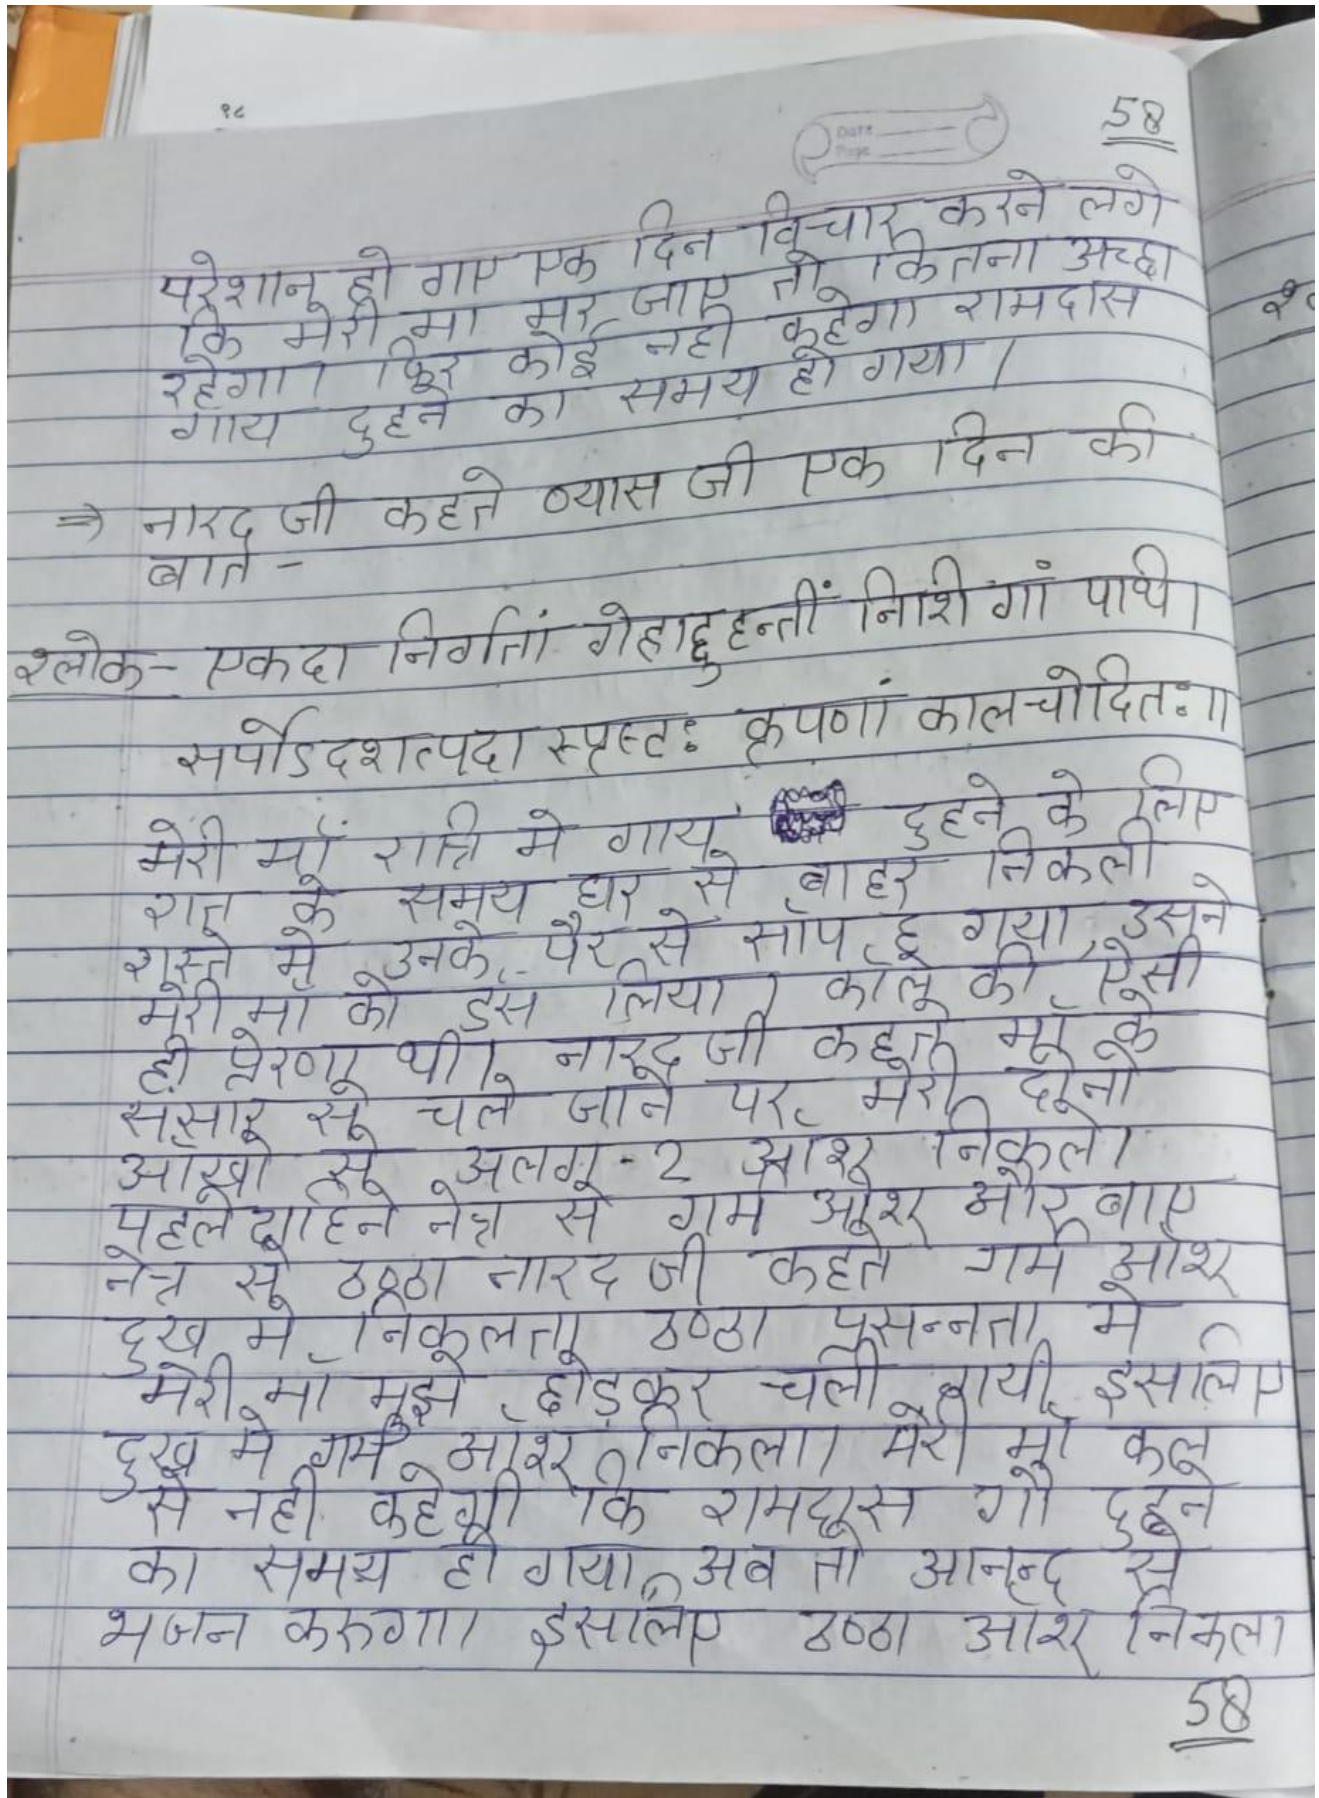 १८
58
Date
Page
परेशान हो गए एक दिन विचार करने लगे
कि मेरी मा मर जाए तो कितना अच्छा
रहेगा। फिर कोई नही कहेगा रामदास
गाय दुहने का समय हो गया।
⇒ नारद जी कहते व्यास जी एक दिन की
बात -
श्लोक - एकदा निर्गतां गेहाद्दुहन्तीं निशि गां पथि।
सर्पोऽदशत्पदा स्पृस्टः कृपणां कालचोदितः॥
मेरी माँ रात्रि मे गाय दुहने के लिए
रात के समय घर से बाहर निकली
रास्ते मे उनके पैर से साँप छू गया, उसने
मेरी माँ को डस लिया। काल की ऐसी
ही प्रेरणा थी। नारद जी कहते माँ के
संसार से चले जाने पर, मेरी दोनो
आँखो से अलग-2 आंशू निकले।
पहले दाहिने नेत्र से गर्म आंशू और बाए
नेत्र से ठण्ठा नारद जी कहते गर्म आंशू
दुख मे निकलता ठण्ठा प्रसन्नता मे
मेरी माँ मुझे छोड़कर चली गायी इसलिए
दुख मे गर्म आंशू निकला। मेरी माँ कल
से नही कहेगी कि रामदास गौ दुहने
का समय हो गया, अब तो आनन्द से
भजन करुगा। इसलिए ठण्ठा आंशू निकला
58